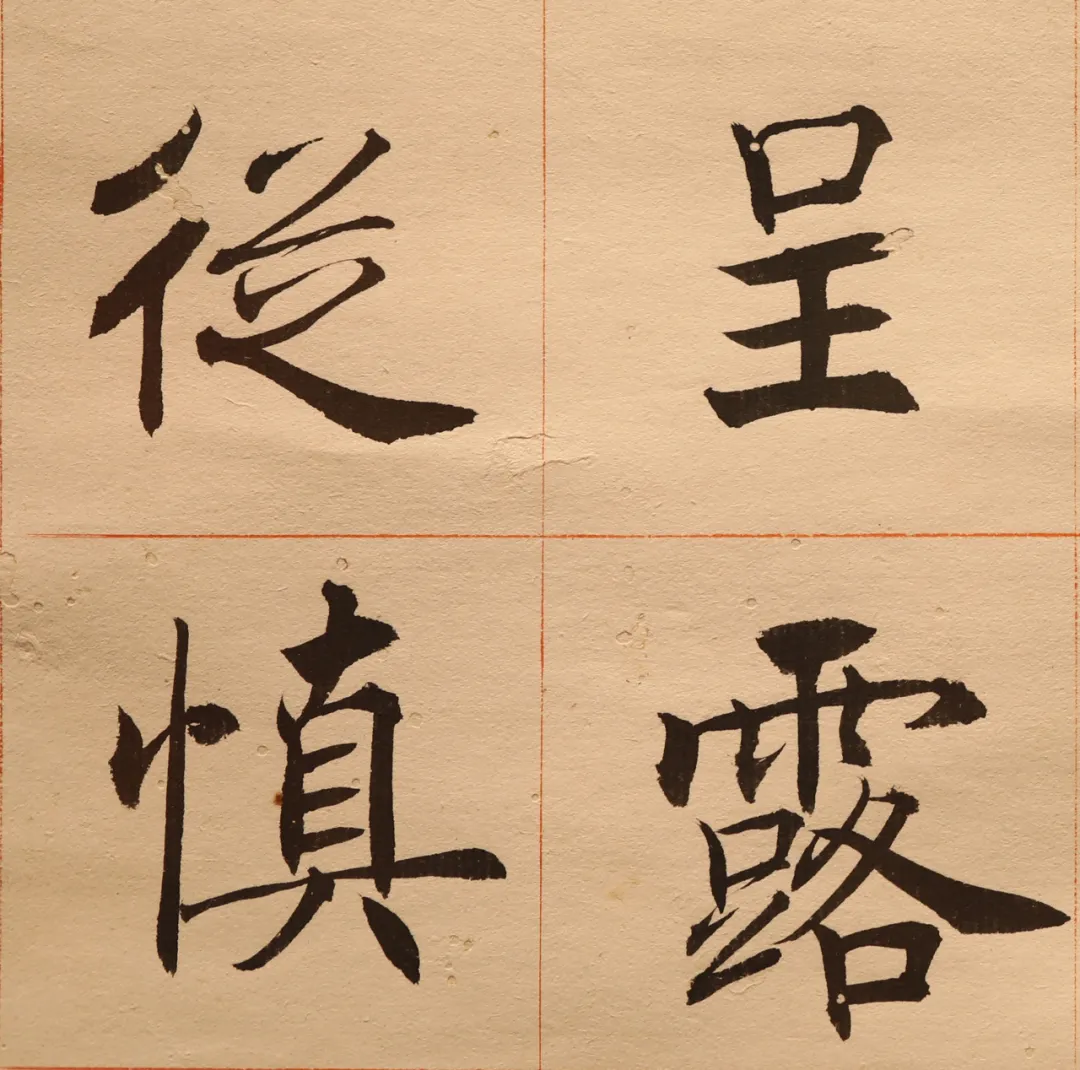 呈露
從慎